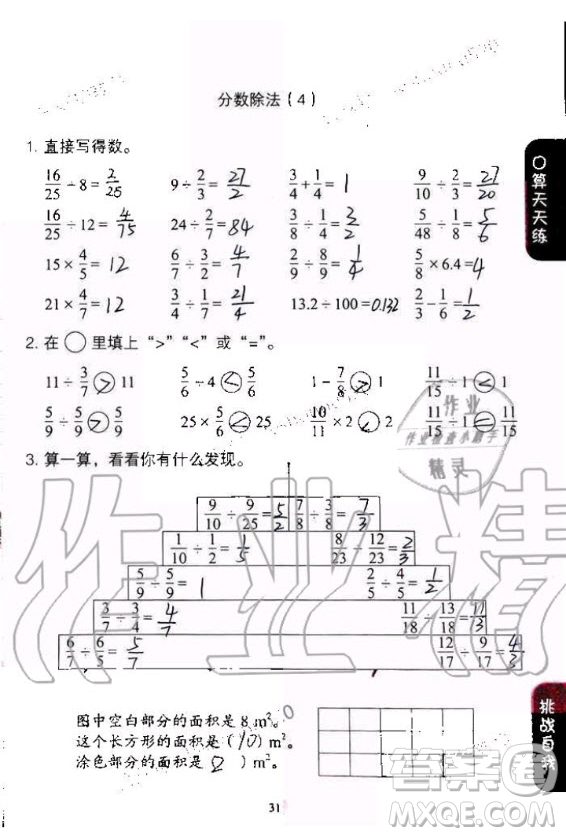 分数除法(4)
1. 直接写得数。
16/25÷8=2/25 9÷2/3=27/2 3/4+1/4=1 9/10÷2/3=27/20
16/25÷12=4/75 24÷2/7=84 3/8÷1/4=3/2 5/48÷1/8=5/6
15×4/5=12 6/7÷2/3=9/7 2/9÷8/9=1/4 5/8×6.4=4
21×4/7=12 3/4÷1/7=21/4 13.2÷100=0.132 2/3-1/6=1/2
2. 在○里填上“>”“<”或“=”。
11÷3/7>11 5/6÷4<5/6 1-7/8<1 11/15÷1<1
5/9÷5/9>5/9 25×5/6<25 10/11×2 2 11/15÷1 11/15
3. 算一算，看看你有什么发现。
9/10÷9/25=5/2 7/8÷3/8=7/3
1/10÷1/2=1/5 8/23÷12/23=2/3
5/9÷5/9=1 2/5÷4/5=1/2
3/7÷3/4=4/7 11/18÷13/18=11/3
6/7÷6/5=5/7 12/17÷9/17=4/3
图中空白部分的面积是 8 m²。
这个长方形的面积是(10)m²。
涂色部分的面积是(2)m²。
31
算天天练
挑战自我
作业
作业检查小助手
精灵
作业精
答案圈
MXQE.COM